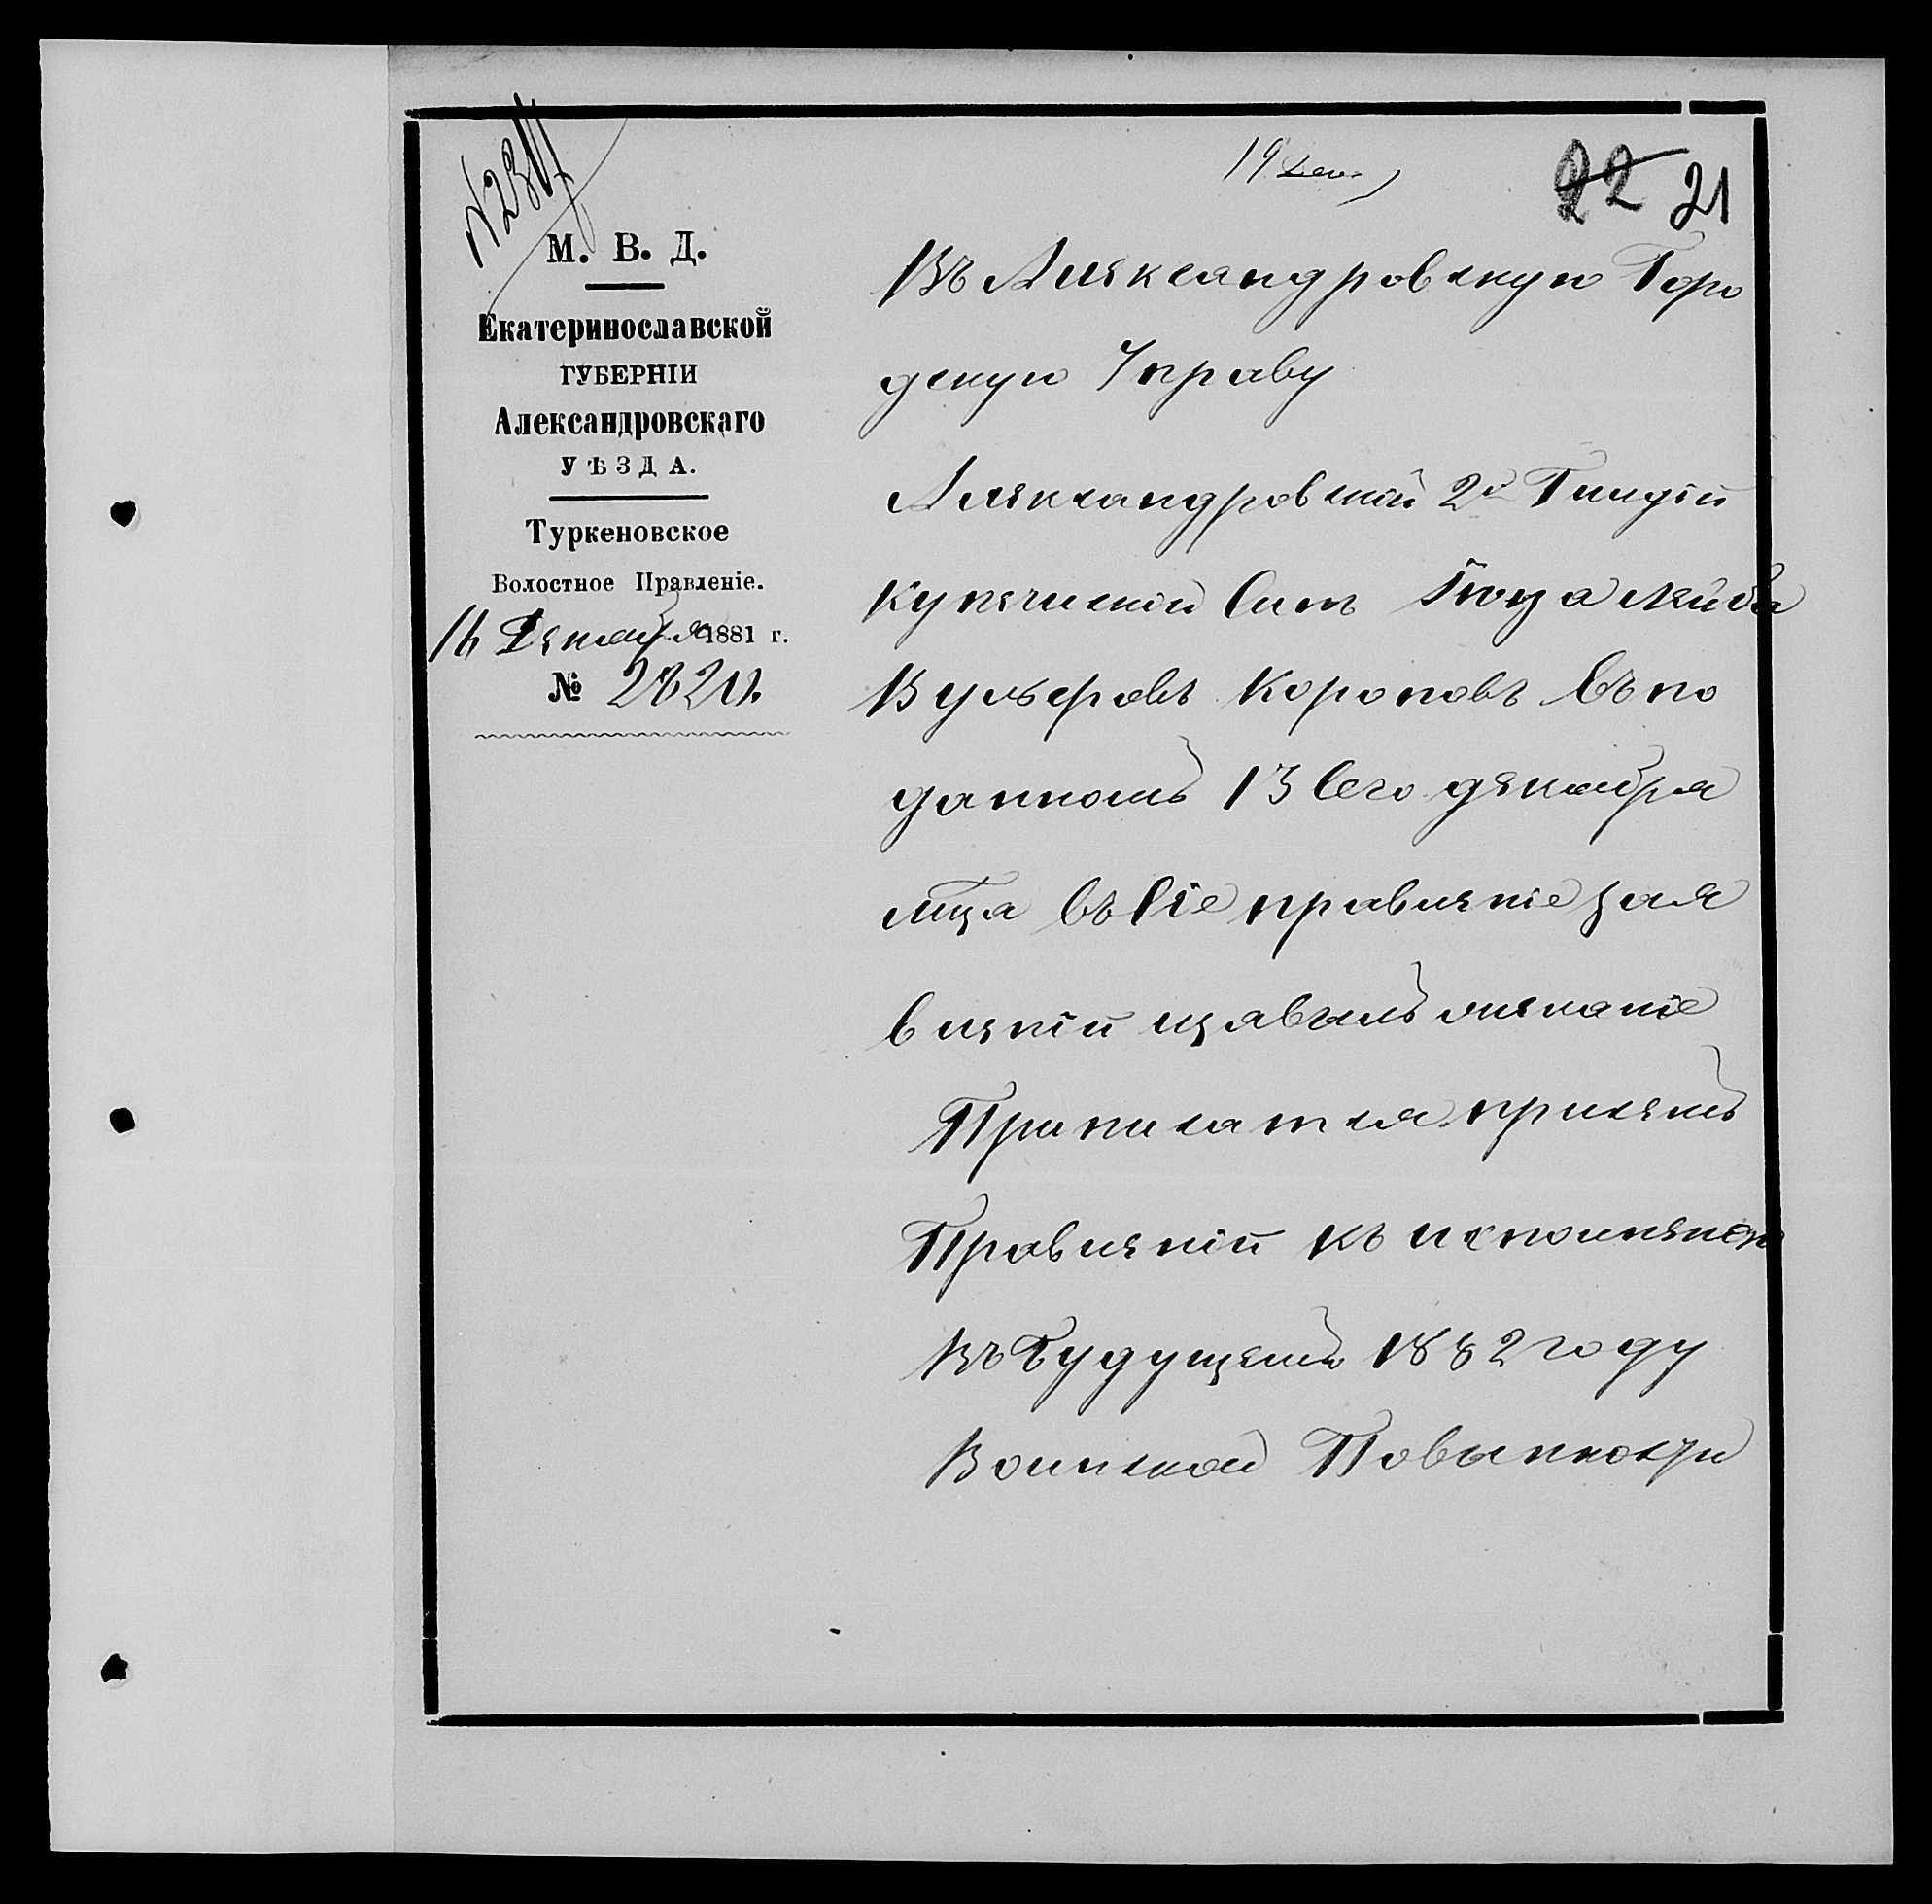 19 Дек.
22 21
М. В. Д.
Екатеринославской
ГУБЕРНІИ
Александровскаго
УѢЗДА.
Туркеновское
Волостное Правленіе.
16 Декабря 1881 г.
№ 2820.
Въ Александровскую Горо
дскую Управу
Александровскій 2й Гильдіи
купеческій Сынъ Лейба
Вульфовъ Короповъ въ по
данномъ 13 сего декабря
мца въ сіе правленіе заяв
вленіи изявилъ желаніе
Приписатся при семъ
Правленіи къ исполненію
въ Будущемъ 1882 году
Воинской Повинности